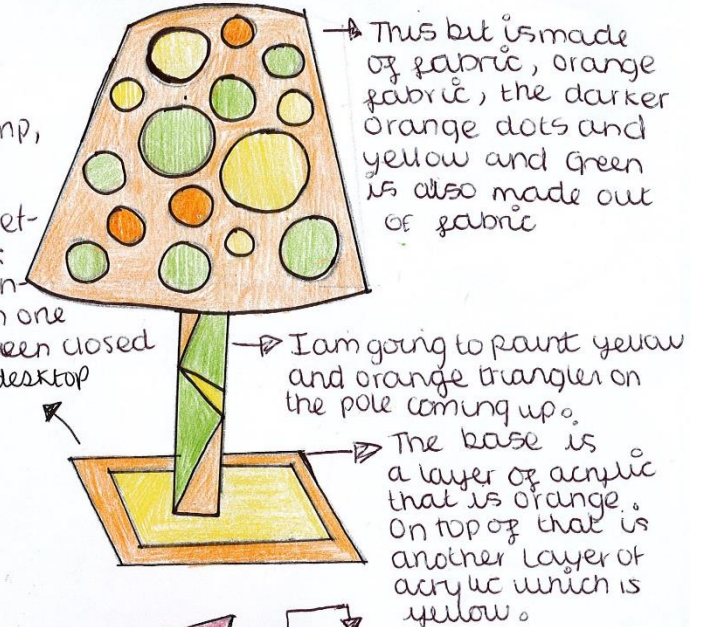 This bit is made
of fabric, orange
fabric, the darker
orange dots and
yellow and Green
is also made out
of fabric
mp,
et-
n-
n one
een closed
desktop
I am going to paint yellow
and orange triangles on
the pole coming up.
The base is
a layer of acrylic
that is orange.
On top of that is
another layer of
acrylic which is
yellow.